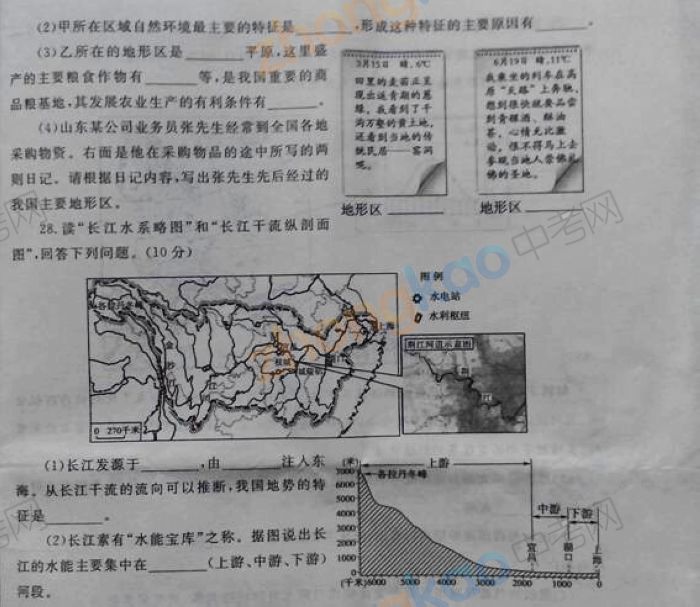 (2)甲所在区域自然环境最主要的特征是______,形成这种特征的主要原因有______。
(3)乙所在的地形区是______平原,这里盛
产的主要粮食作物有______等,是我国重要的商
品粮基地,其发展农业生产的有利条件有______。
(4)山东某公司业务员张先生经常到全国各地
采购物资。右面是他在采购物品的途中所写的两
则日记。请根据日记内容,写出张先生先后经过的
我国主要地形区。
3月15日 晴,6℃
田里的麦苗正呈
现出返青期的葱
绿,我看到了千
沟万壑的黄土地,
还看到当地的传
统民居——窑洞
呢。
地形区______
6月19日 晴,11℃
我乘坐的列车在高
原“天路”上奔驰,
想到很快就要品尝
到青稞酒、酥油
茶,心情无比激
动,恨不得马上去
参观当地人崇佛礼
佛的圣地。
地形区______
28.读“长江水系略图”和“长江干流纵剖面
图”,回答下列问题。(10分)
各拉丹冬峰
金
沙
江
江
上海
0 270千米
图例
水电站
水利枢纽
荆江河道示意图
荆
江
(1)长江发源于______,由______注入东
海。从长江干流的流向可以推断,我国地势的特
征是______。
(2)长江素有“水能宝库”之称。据图说出长
江的水能主要集中在______(上游、中游、下游)
河段。
(米)
7000
6000
5000
4000
3000
2000
1000
0
各拉丹冬峰
上游
中游
下游
宜昌
湖口
上海
(千米)6000 5000 4000 3000 2000 1000 0
zhongkao
中考网